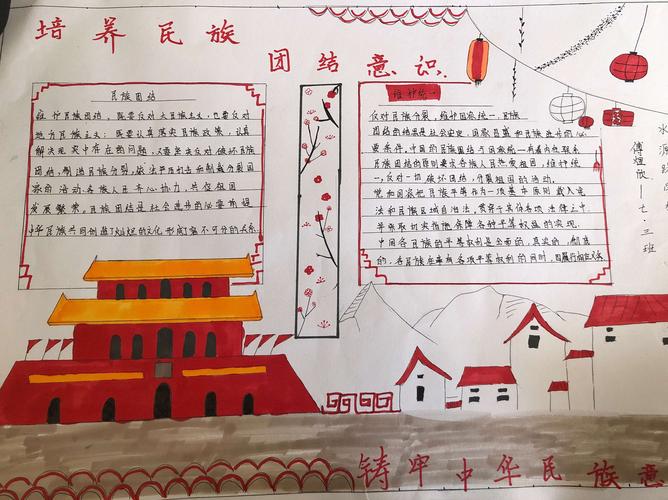 培养民族
团结意识
民族团结
维护民族团结，既要反对大民族主义，也要反对
地方民族主义；既要认真落实民族政策，认真
解决现实中存在的问题，又要坚决反对破坏民族
团结，制造民族分裂，依法严厉打击和制裁分裂国
家的活动，各族人民齐心协力，共促祖国
发展繁荣，民族团结是社会进步的必要前提
中华民族共同创造了灿烂的文化形成了密不可分的关系
维护统一
反对民族分裂，维护国家统一，民族
团结的结果是社会安定，国家昌盛和民族进步的必
要条件，中国的民族团结与国家统一有着内在联系
民族团结的原则要求各族人民热爱祖国，维护统
一，反对一切破坏团结，分裂祖国的活动。
党和国家把民族平等作为一项基本原则载入宪
法和民族区域自治法，贯穿于实体各项法律之中
并采取切实措施保障各种平等权益的实现。
中国各民族的平等权利是全面的，真实的，制度
的，各民族在享有各项平等权利的同时，
水源
傅煊欣 七·三班
铸牢中华民族意